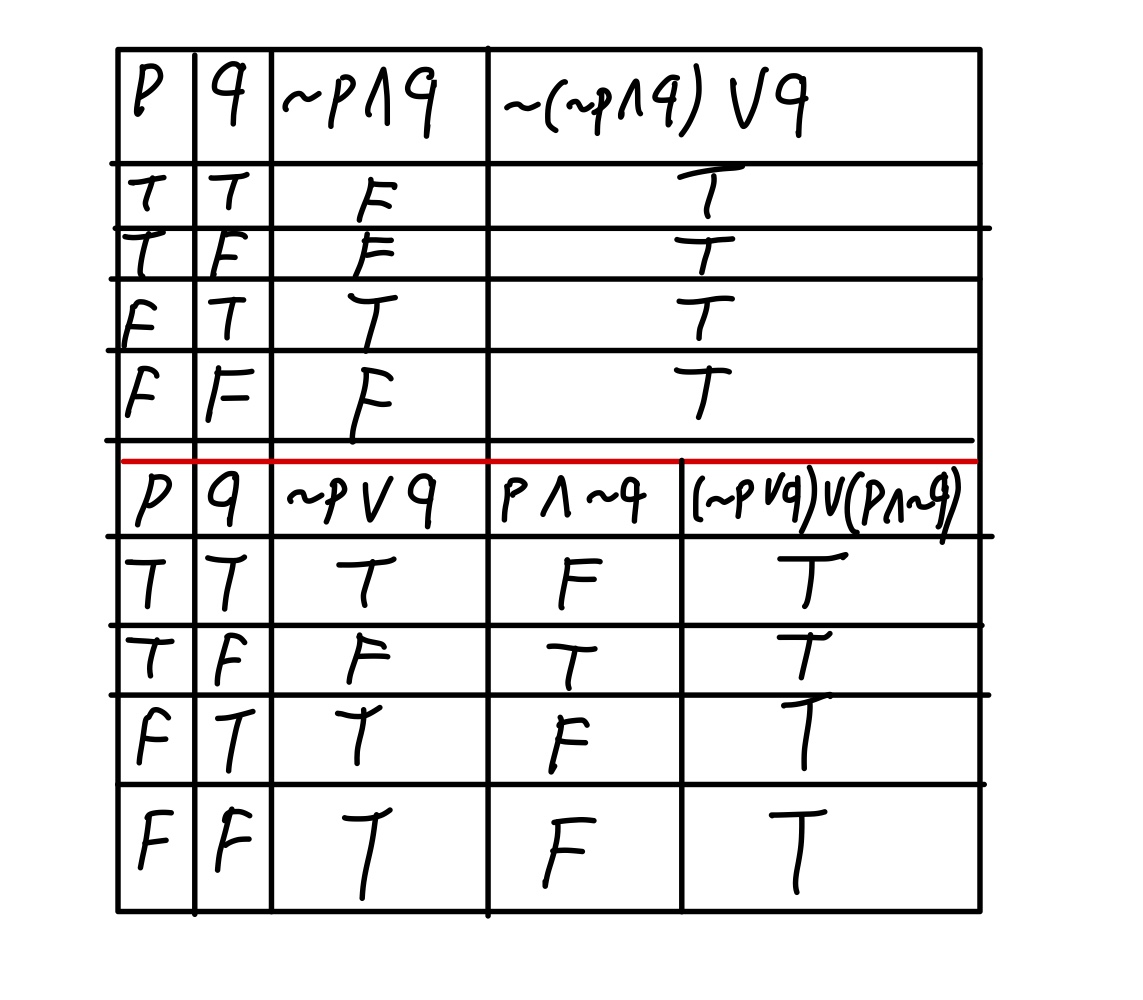 P q ~p∧q ~(~p∧q) ∨q
T T F T
T F F T
F T T T
F F F T
P q ~p∨q P∧~q (~p∨q)∨(p∧~q)
T T T F T
T F F T T
F T T F T
F F T F T